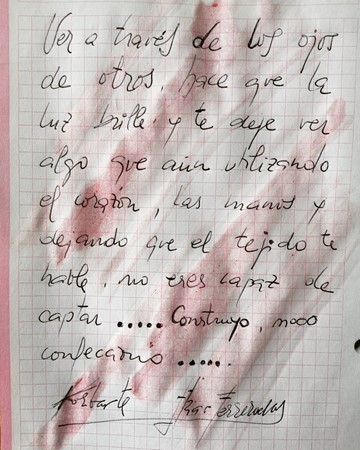 Ver a través de los ojos
de otros, hace que la
luz brille y te deje ver
algo que aún utilizando
el corazón, las manos y
dejando que el tejido te
hable, no eres capaz de
captar ..... Construyo, nooo
confecciono .....